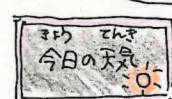 きょう てんき
今日の天気